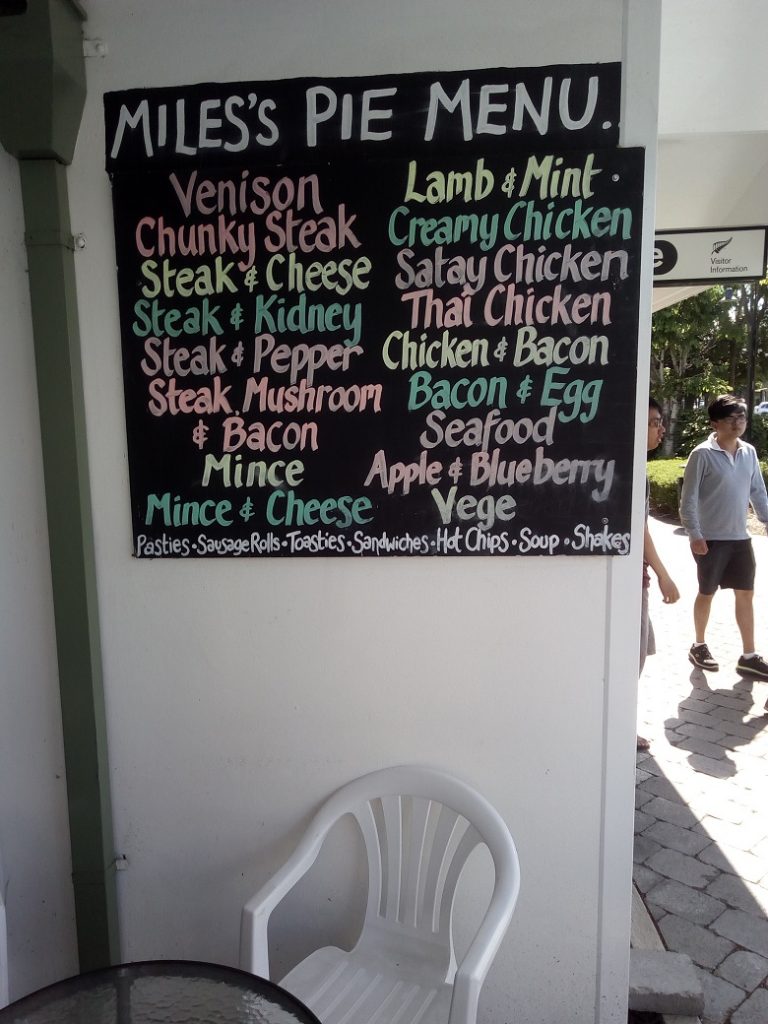 MILES'S PIE MENU..
VENISON
CHUNKY STEAK
STEAK & CHEESE
STEAK & KIDNEY
STEAK & PEPPER
STEAK, MUSHROOM
& BACON
MINCE
MINCE & CHEESE
LAMB & MINT
CREAMY CHICKEN
SATAY CHICKEN
THAI CHICKEN
CHICKEN & BACON
BACON & EGG
SEAFOOD
APPLE & BLUEBERRY
VEGE
PASTIES • SAUSAGE ROLLS • TOASTIES • SANDWICHES • HOT CHIPS • SOUP • SHAKES
e
Visitor
Information